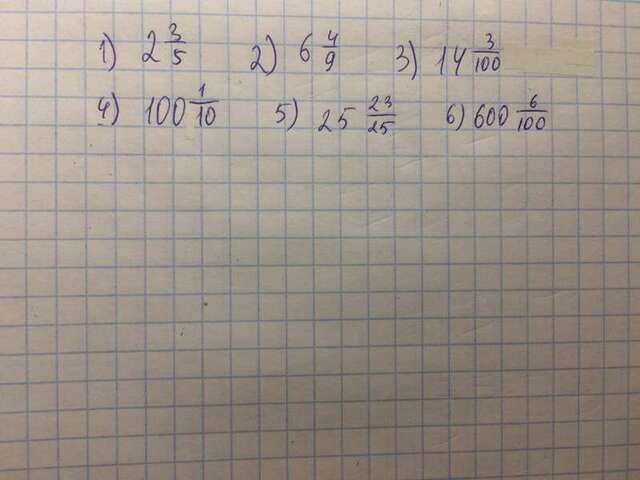 1) 2 3/5 2) 6 4/9 3) 14 3/100
4) 100 1/10 5) 25 23/25 6) 600 6/100